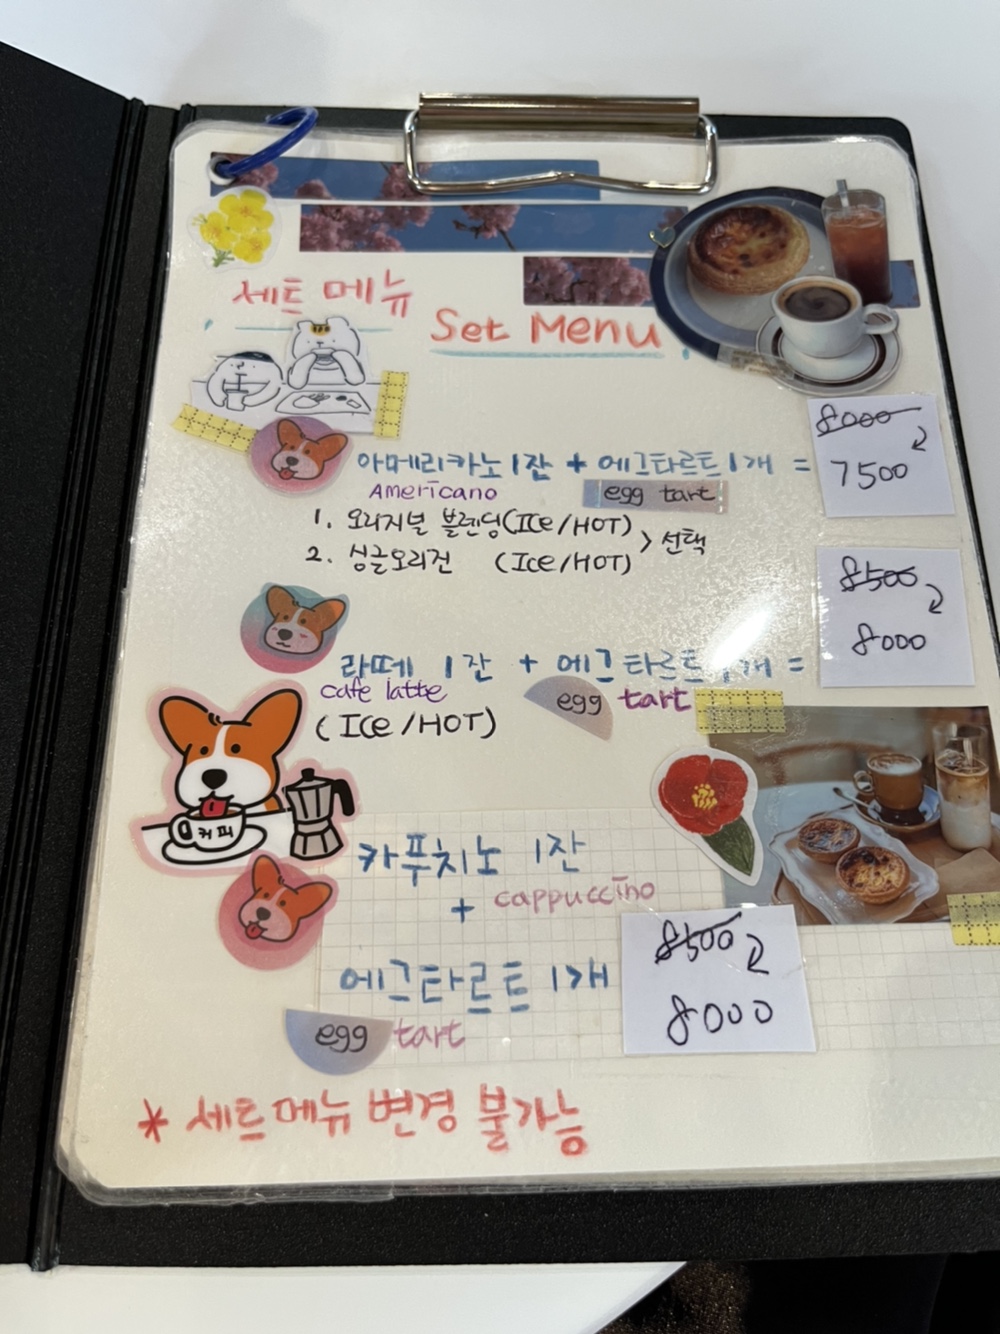 세트 메뉴
Set Menu
아메리카노 1잔 + 에그타르트 1개 =
8000
7500
Americano
egg tart
1. 오리지널 블렌딩(ICe/HOT)
2. 싱글오리진 (ICe/HOT)
> 선택
8500
8000
라떼 1잔 + 에그타르트 1개 =
cafe latte
egg tart
(ICe/HOT)
커피
카푸치노 1잔
+ cappuccino
에그타르트 1개
8500
8000
egg tart
* 세트메뉴 변경 불가능